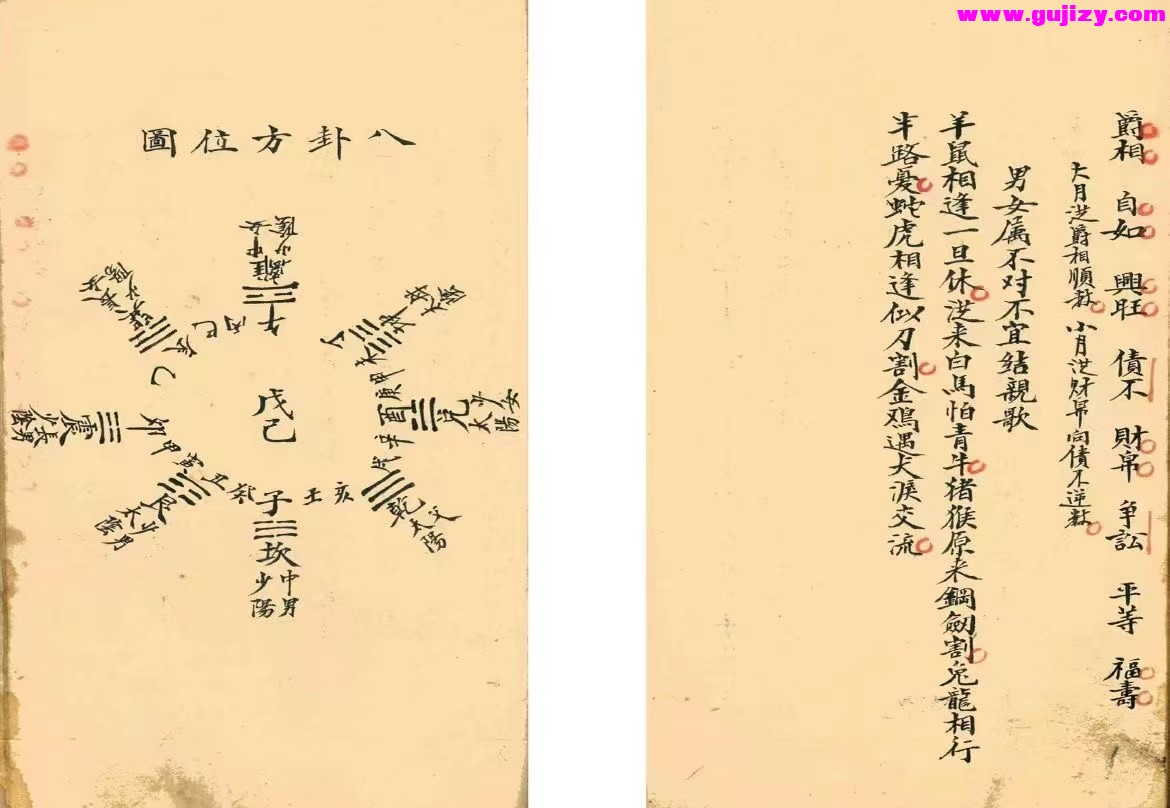 www.gujizy.com
爵相 自如 興旺 債不 財帛 争訟 平等 福壽
大月從爵相順数 小月從財帛向債不逆数
男女属不对不宜結親歌
羊鼠相逢一旦休從来白馬怕青牛猪猴原来鋼劔割兔龍相行
半路憂蛇虎相逢似刀割金鳮遇犬淚交流
八卦方位圖
離
中女
少陰
午
丁
坤
太陰
未
申
庚
酉
兌
少女
太陽
辛
戌
乾
父
太陽
亥
壬
子
坎
中男
少陽
癸
丑
艮
少男
太陰
寅
甲
卯
震
長男
少陰
乙
辰
巽
巳
丙
戊己